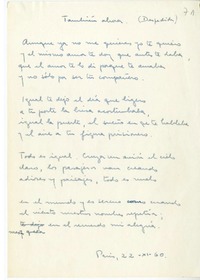 También ahora (Despedida)
Aunque ya no me quieras yo te quiero
y el mismo amor te doy que antes te daba,
que el amor te lo di porque te amaba
y no sólo por ser tu compañero.
Igual te dejo el día que
a tu puerta la luna acostumbraba
igual la puerta, el sueño en que te hablaba
y el aire a tu figura prisionero.
Todo es igual. Cruza un avión el cielo
claro, los pájaros van cruzando
adioses y paisajes, todo es vuelo
en el mundo y es sereno cuando
el viento nuestros nombres repetía,
en el recuerdo mi alegría.
queda
París, 22 - XI - 60.